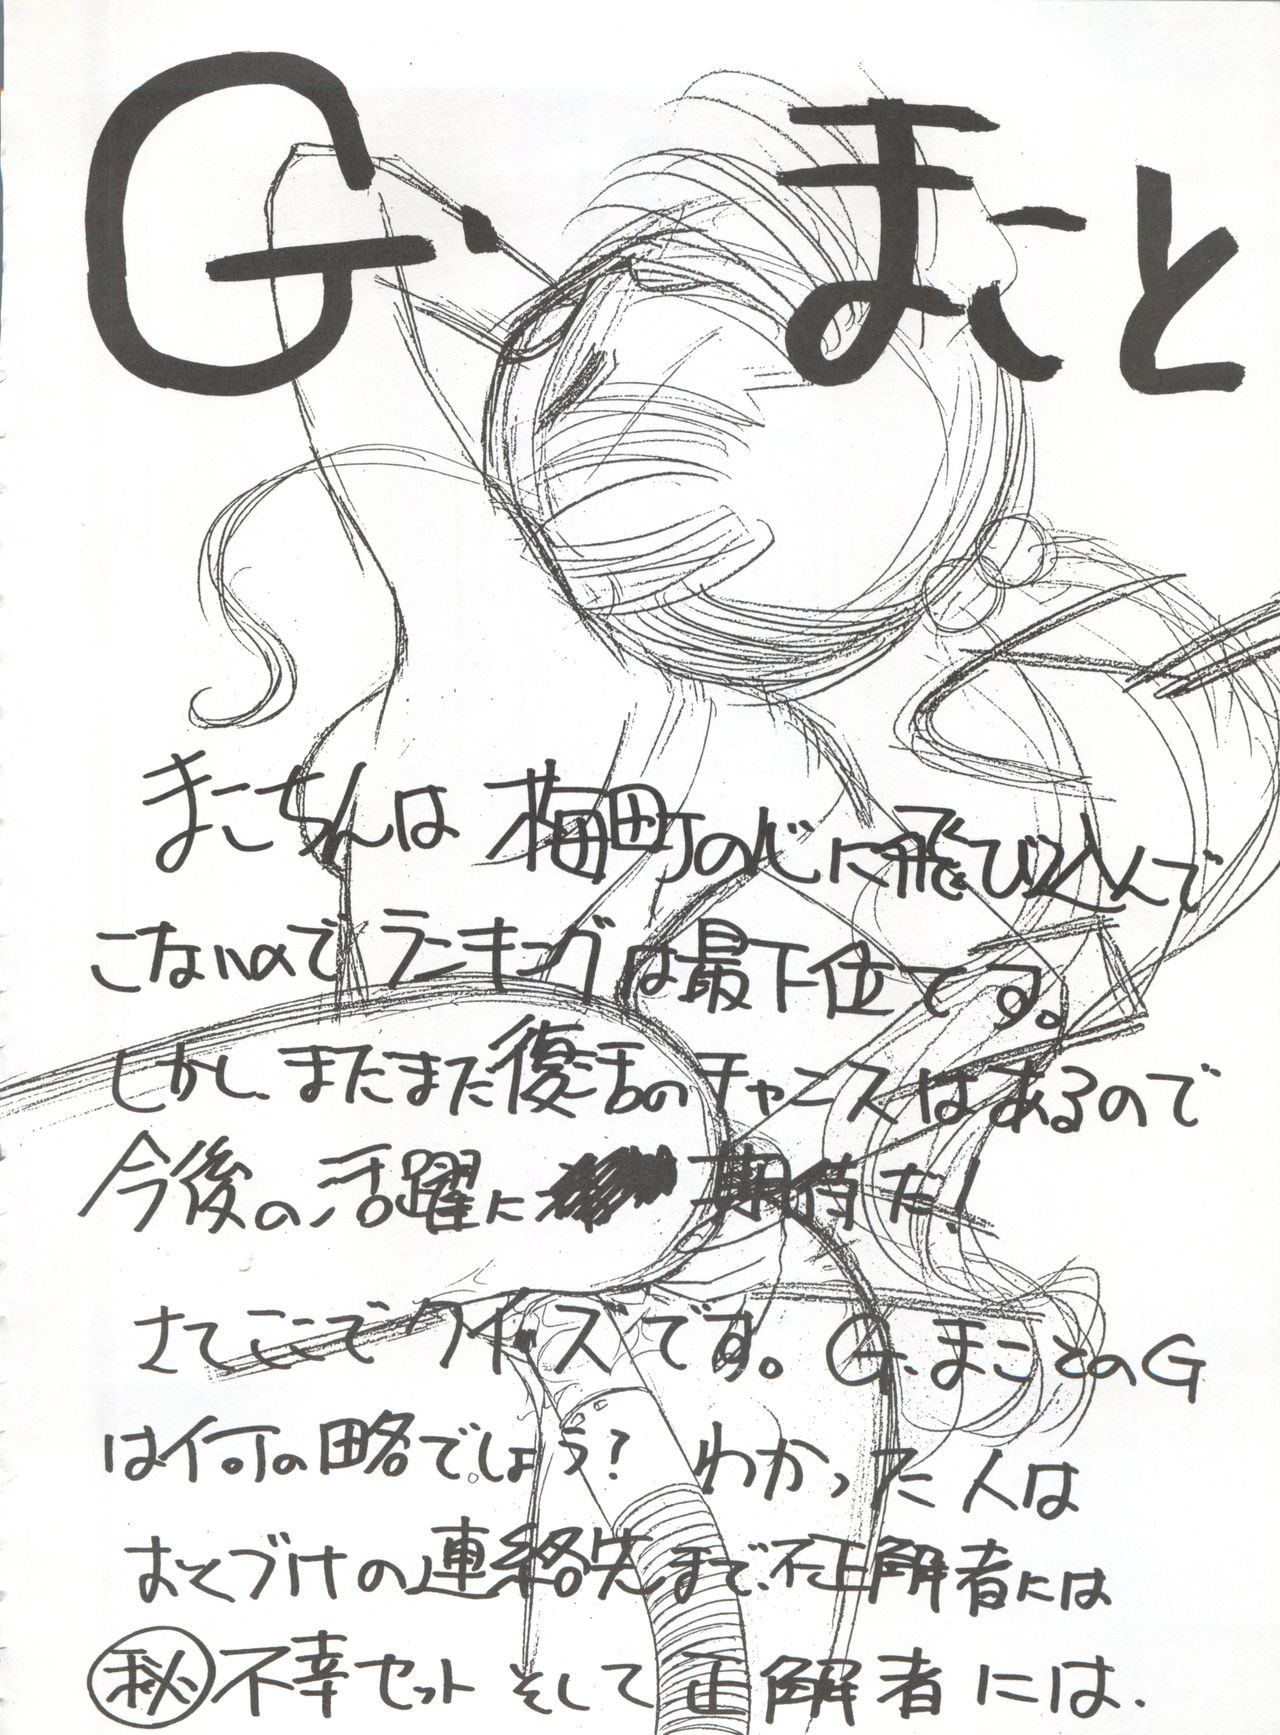 G・まこと
まこちんは 梅町の心に飛び込んで
こないのでランキングは最下位です。
しかし、まだまだ復活のチャンスはあるので
今後の活躍に 期待だ！
さてここでクイズです。G.まことのG
は何の略でしょう？ わかった人は
おくづけの連絡先まで、不正解者には
㊙不幸セット そして正解者には．